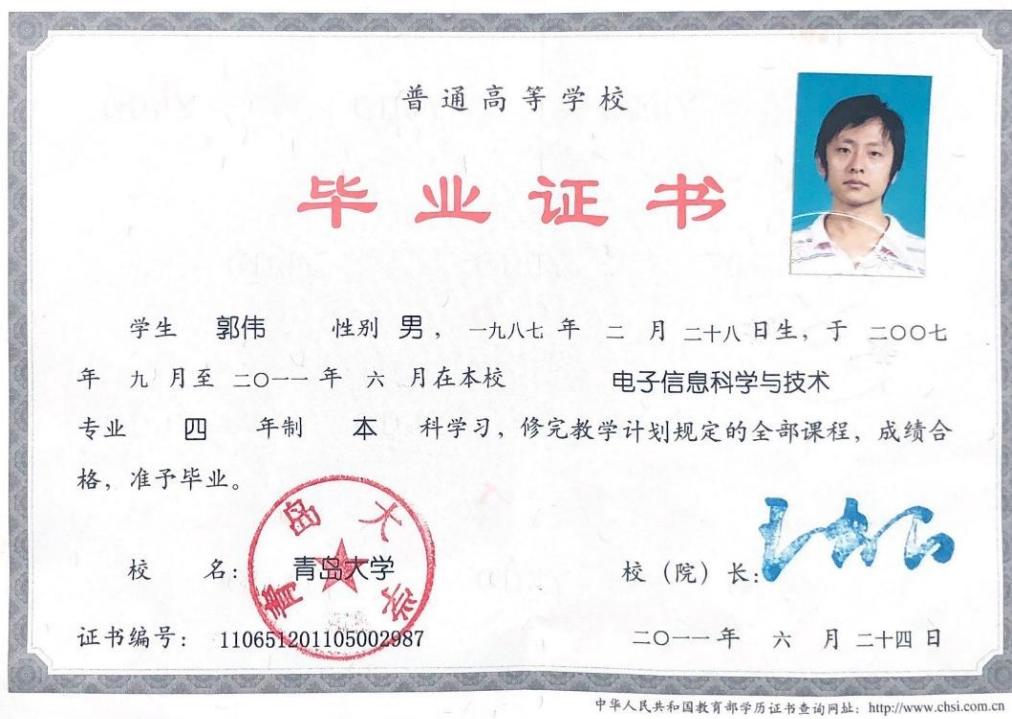 普通高等学校
毕业证书
学生 郭伟 性别 男，一九八七 年 二 月 二十八 日生，于 二〇〇七
年 九 月至 二〇一一 年 六 月在本校 电子信息科学与技术
专业 四 年制 本 科学习，修完教学计划规定的全部课程，成绩合
格，准予毕业。
青岛大学
校 名：青岛大学 校（院）长：
证书编号：110651201105002987 二〇一一 年 六 月 二十四 日
中华人民共和国教育部学历证书查询网址：http://www.chsi.com.cn